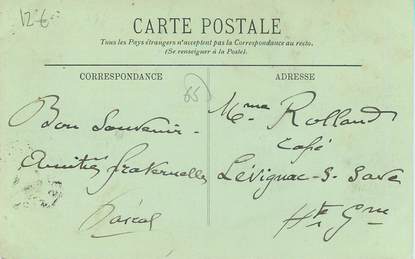 12€
CARTE POSTALE
Tous les Pays étrangers n'acceptent pas la Correspondance au recto.
(Se renseigner à la Poste).
CORRESPONDANCE
55
Bon Souvenir
Amitiés fraternelles
Pascal
ADRESSE
Mme Rolland
Café
Lévignac-S-Save
Hte Gne